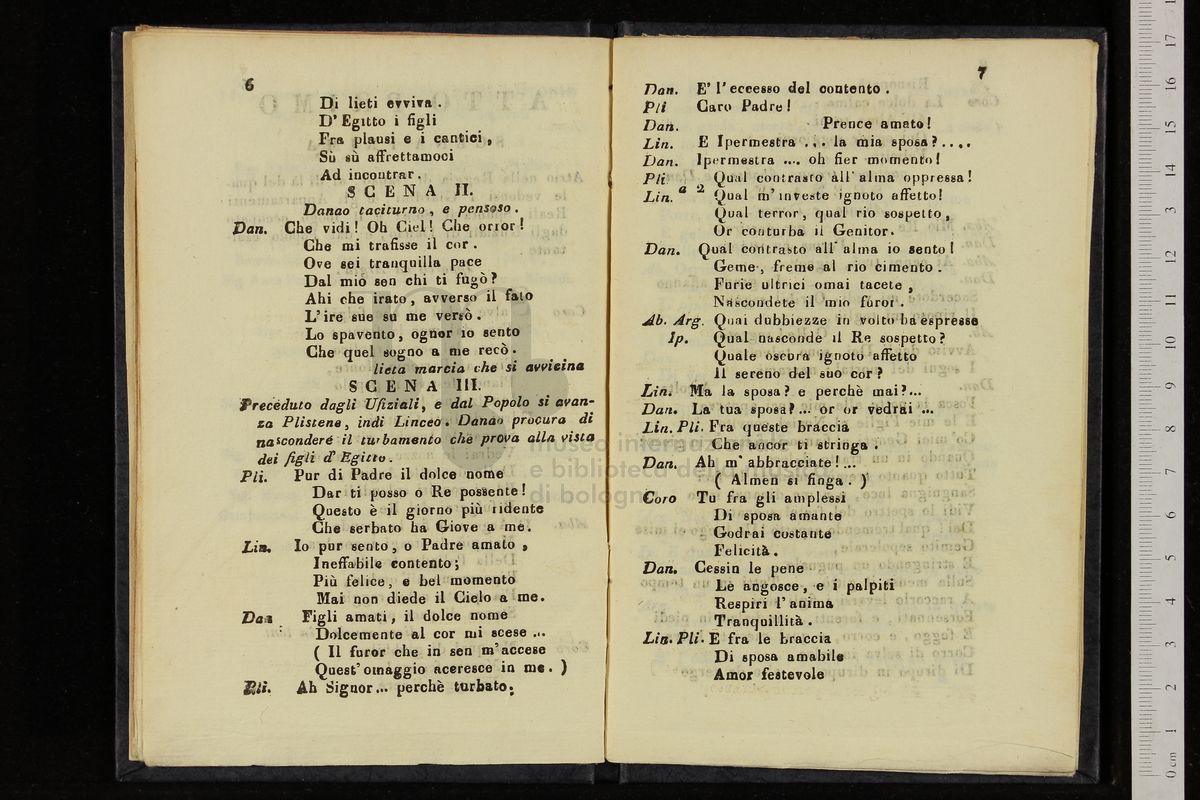 6
Di lieti evviva.
D' Egitto i figli
Fra plausi e i cantici,
Sù sù affrettamoci
Ad incontrar.
SCENA II.
Danao taciturno, e pensoso.
Dan. Che vidi! Oh Ciel! Che orror!
Che mi trafisse il cor.
Ove sei tranquilla pace
Dal mio sen chi ti fugò?
Ahi che irato, avverso il fato
L'ire sue su me versò.
Lo spavento, ognor io sento
Che quel sogno a me recò.
lieta marcia che si avvicina
SCENA III.
Preceduto dagli Ufiziali, e dal Popolo si avan-
za Plistene, indi Linceo. Danao procura di
nasconderé il turbamento che prova alla vista
dei figli d' Egitto.
Pli. Pur di Padre il dolce nome
Dar ti posso o Re possente!
Questo è il giorno più ridente
Che serbato ha Giove a me.
Lin. Io pur sento, o Padre amato,
Ineffabile contento;
Più felice, e bel momento
Mai non diede il Cielo a me.
Dan Figli amati, il dolce nome
Dolcemente al cor mi scese ...
( Il furor che in sen m'accese
Quest' omaggio acresce in me. )
Pli. Ah Signor... perchè turbato;
7
Dan. E' l' eccesso del contento.
Pli Caro Padre!
Dan. Prence amato!
Lin. E Ipermestra ... la mia sposa?....
Dan. Ipermestra .... oh fier momento!
Pli Qual contrasto all' alma oppressa!
Lin. a 2 Qual m'investe ignoto affetto!
Qual terror, qual rio sospetto,
Or conturba il Genitor.
Dan. Qual contrasto all' alma io sento!
Geme, freme al rio cimento.
Furie ultrici omai tacete,
Nascondete il mio furor.
Ab. Arg. Quai dubbiezze in volto ha espresse
Ip. Qual nasconde il Re sospetto?
Quale oscura ignoto affetto
Il sereno del suo cor?
Lin. Ma la sposa? e perchè mai?...
Dan. La tua sposa?... or or vedrai ...
Lin. Pli. Fra queste braccia
Che ancor ti stringa.
Dan. Ah m' abbracciate!...
( Almen si finga. )
Coro Tu fra gli amplessi
Di sposa amante
Godrai costante
Felicità.
Dan. Cessin le pene
Le angosce, e i palpiti
Respiri l'anima
Tranquillità.
Lin. Pli. E fra le braccia
Di sposa amabile
Amor festevole
museo internazionale
e biblioteca della musica
di bologna